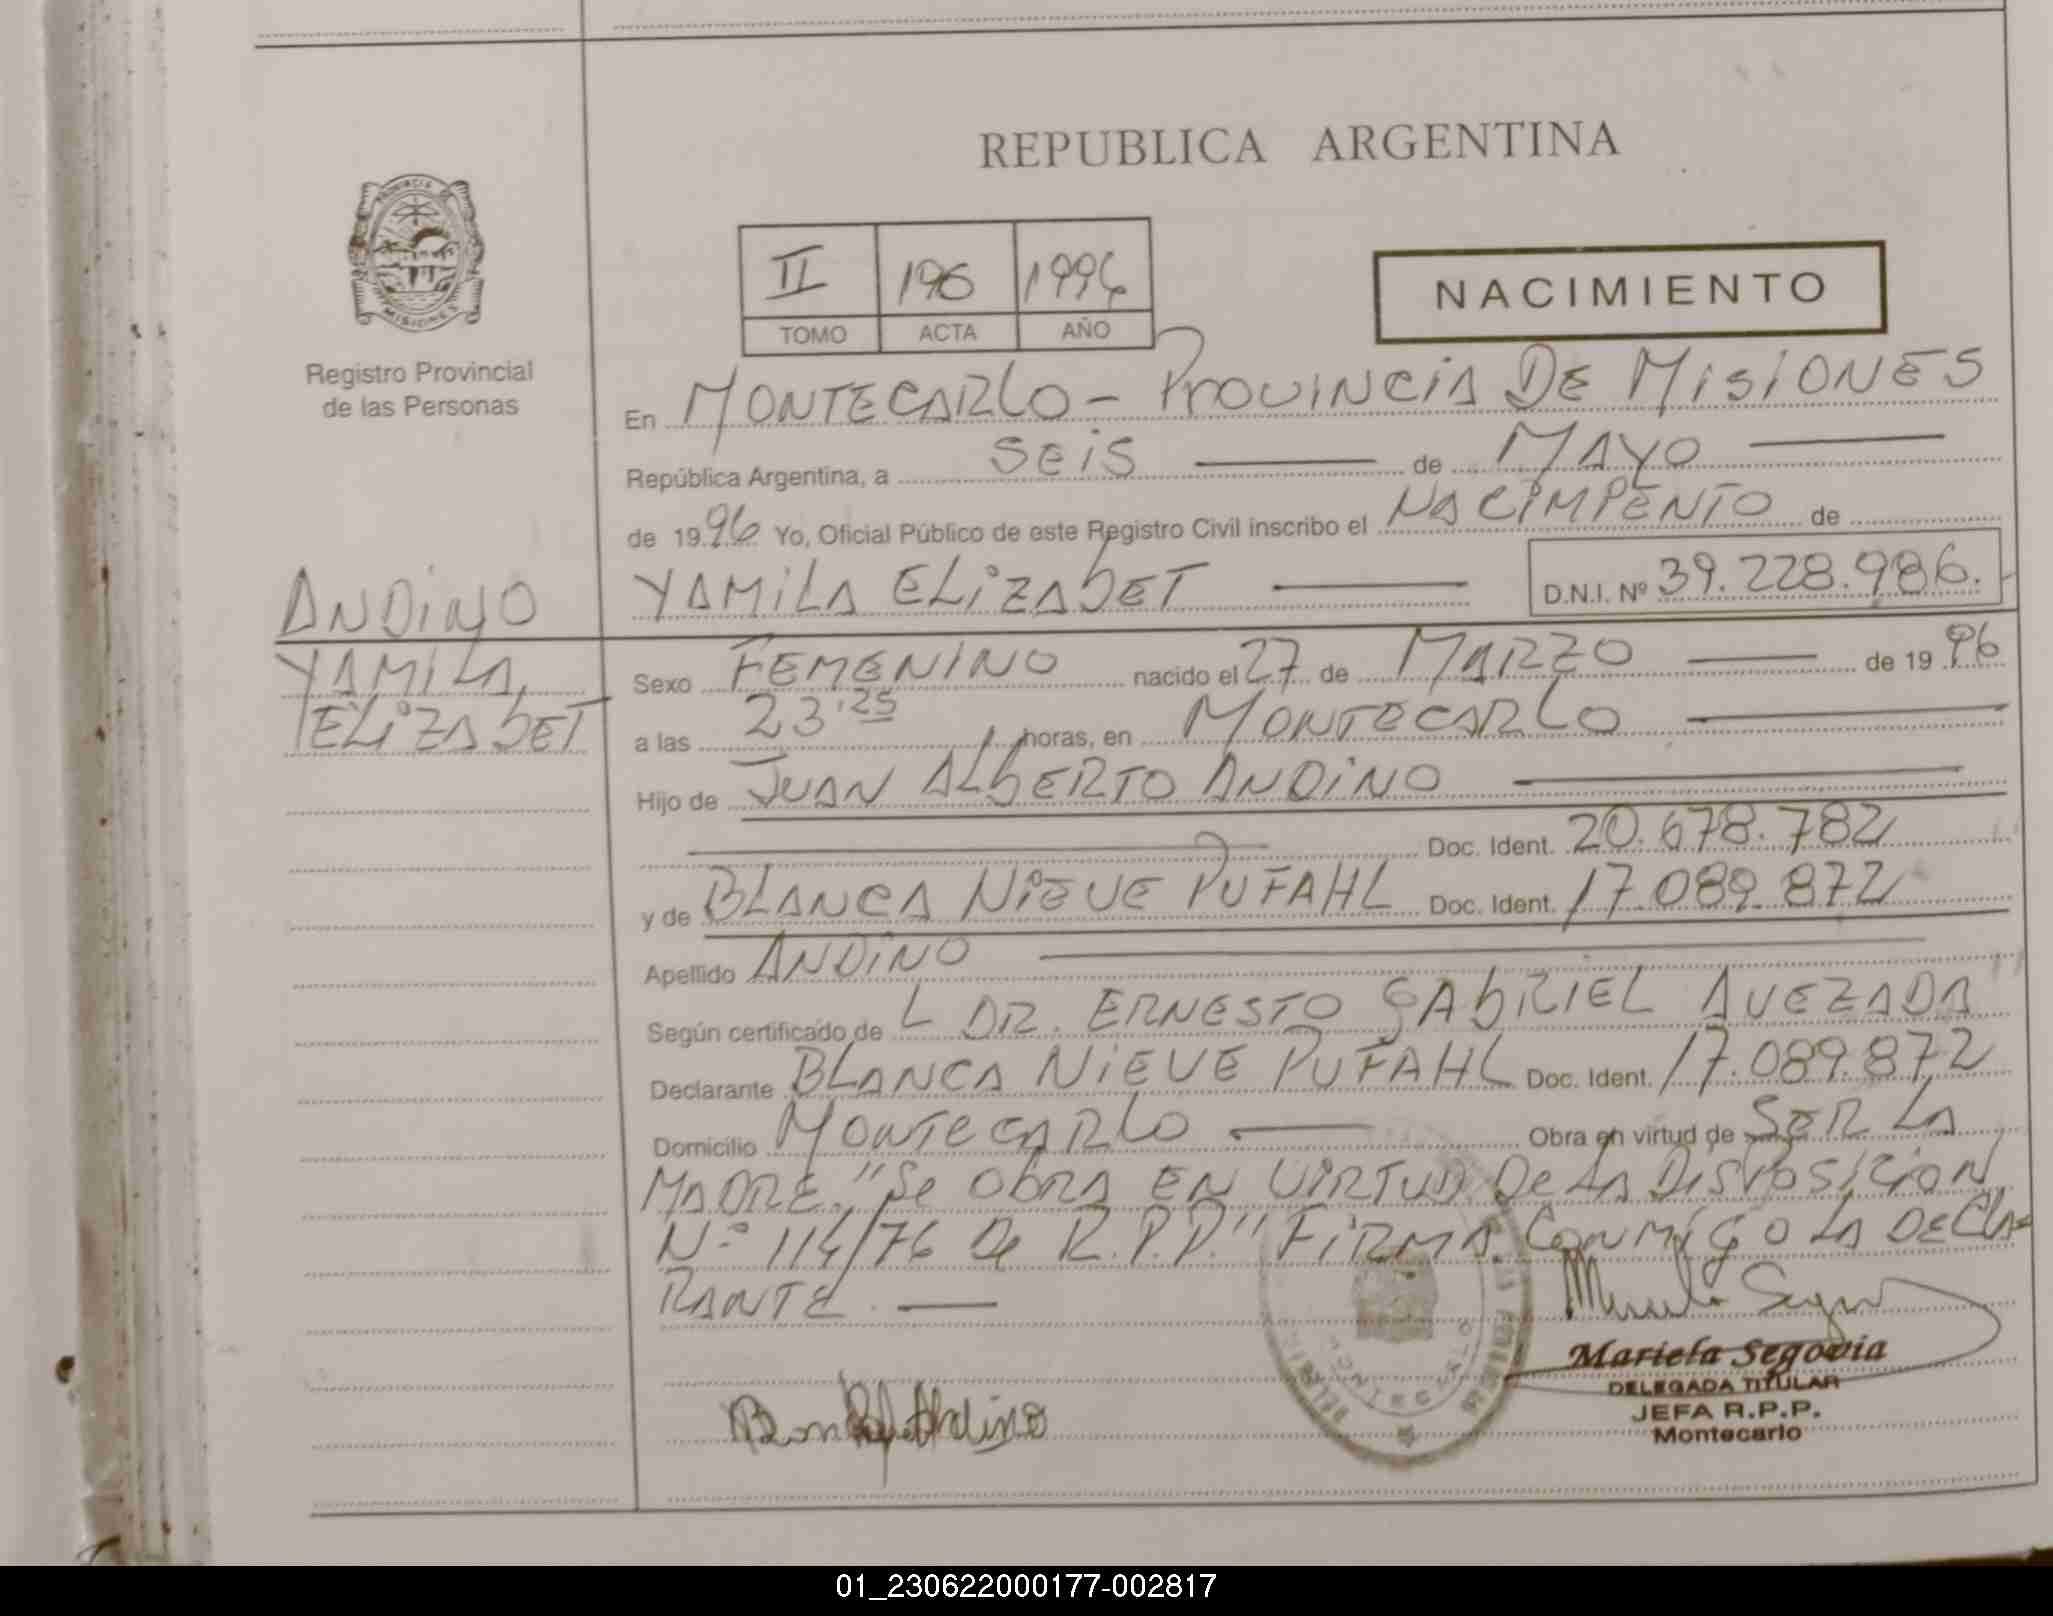 REPUBLICA ARGENTINA
PROVINCIA
MISIONES
Registro Provincial
de las Personas
II 196 1996
TOMO ACTA AÑO
NACIMIENTO
En MONTECARLO - PROVINCIA DE MISIONES
República Argentina, a SEIS de MAYO
de 1996 Yo, Oficial Público de este Registro Civil inscribo el NACIMIENTO de
ANDINO YAMILA ELIZABET D.N.I. Nº 39.228.986.
YAMILA Sexo FEMENINO nacido el 27 de MARZO de 1996
ELIZABET a las 23.25 horas, en MONTECARLO
Hijo de JUAN ALBERTO ANDINO
Doc. Ident. 20.678.782
y de BLANCA NIEVE PUFAHL Doc. Ident. 17.089.872
Apellido ANDINO
Según certificado de L DR. ERNESTO GABRIEL AVEZADA
Declarante BLANCA NIEVE PUFAHL Doc. Ident. 17.089.872
Domicilio MONTECARLO Obra en virtud de SER LA
MADRE. "Se OBRA EN VIRTUD De LA DISPOSICION
Nº 114/76 De R.P.P." FIRMA CONMIGO LA DECLA-
RANTE.
Mariela Segovia
DELEGADA TITULAR
JEFA R.P.P.
Montecarlo
01_230622000177-002817